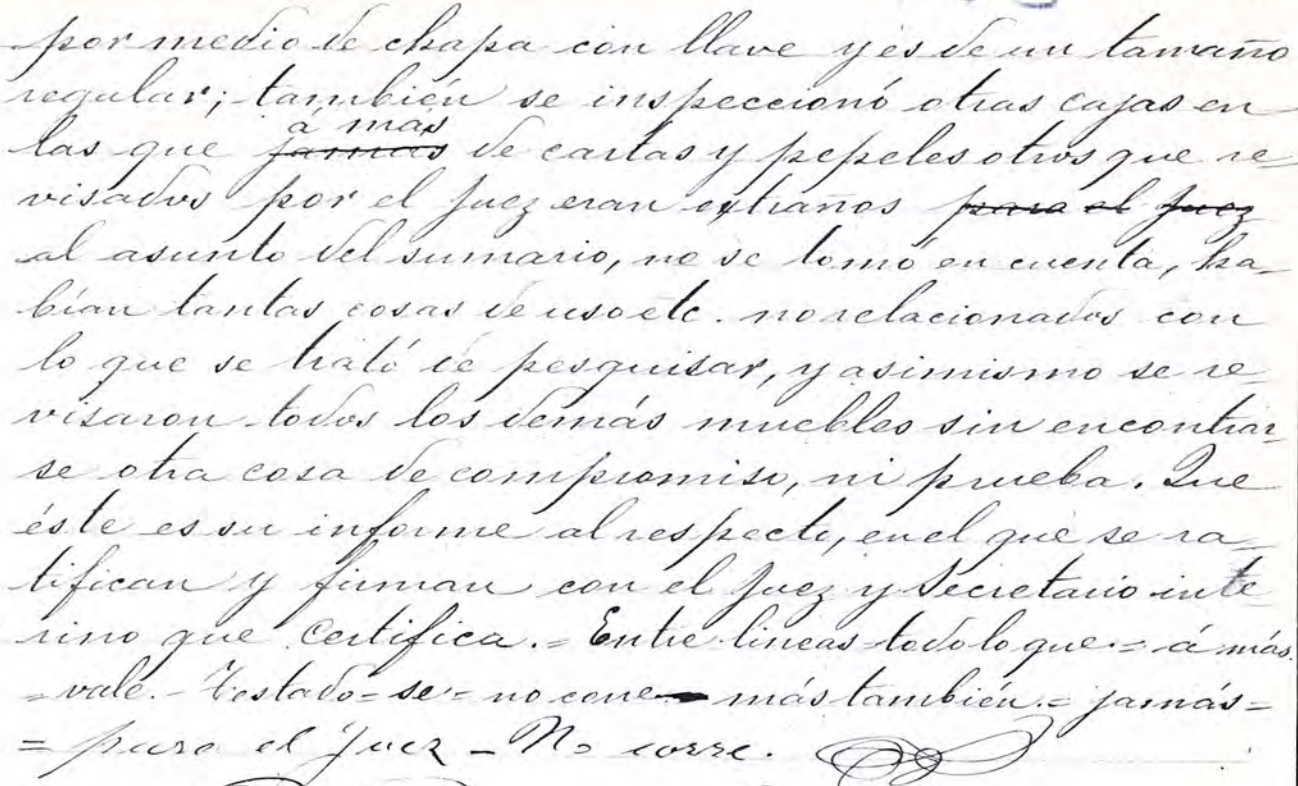 por medio de chapa con llave y es de un tamaño
regular; también se inspeccionó otras cajas en
á más
las que jamás de cartas y pepeles otros que re-
visados por el juez eran extraños para el juez
al asunto del sumario, no se tomó en cuenta, ha-
bían tantas cosas de uso etc. no relacionados con
lo que se trató de pesquisar, y asimismo se re-
visaron todos los demás muebles sin encontrar-
se otra cosa de compromiso, ni prueba. Que
éste es su informe al respecto, en el que se ra-
tifican y firman con el juez y Secretario inte
rino que certifica. = Entre lineas = todo lo que = á más.
= vale. - Testado = se = no corre — más también. = jamás =
= para el juez - No corre.